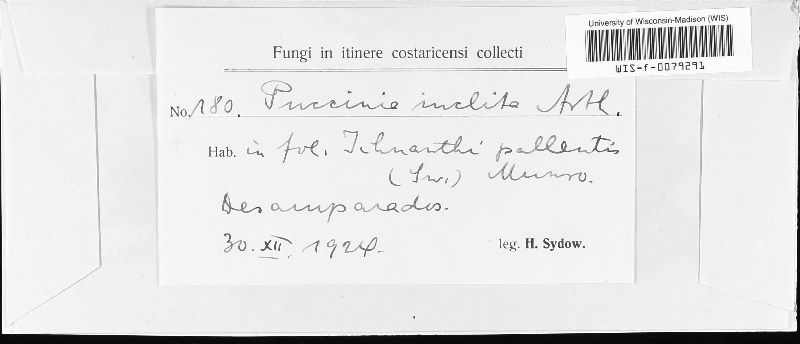 University of Wisconsin-Madison (WIS)
WIS-f-0079291
Fungi in itinere costaricensi collecti
No. 180. Puccinia inclita Arth.
Hab. in fol. Ichnanthi pallentis
(Sw.) Munro.
Desamparados.
30. XII. 1924.
leg. H. Sydow.